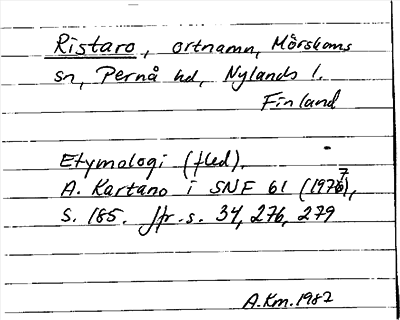 Ristaro, ortnamn, Mörskoms
sn, Pernå hd, Nylands l.
Finland
Etymologi (fled).
A. Kartano i SNF 61 (1977),
s. 185. Jfr. s. 34, 276, 279
A.Km.1982